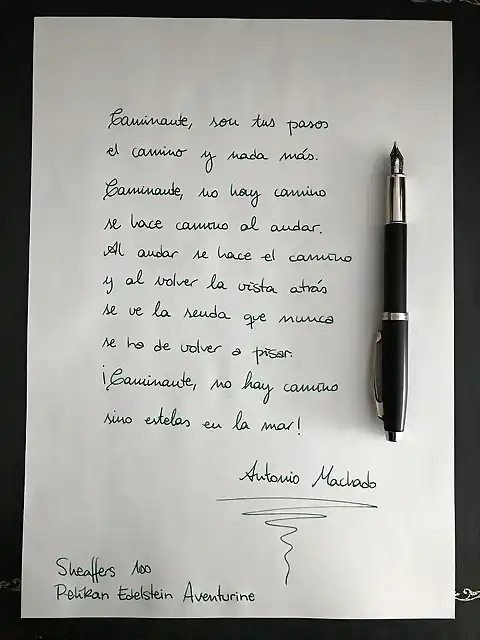 Caminante, son tus pasos
el camino y nada más.
Caminante, no hay camino
se hace camino al andar.
Al andar se hace el camino
y al volver la vista atrás
se ve la senda que nunca
se ha de volver a pisar.
¡Caminante, no hay camino
sino estelas en la mar!
Antonio Machado
Sheaffers 100
Pelikan Edelstein Aventurine